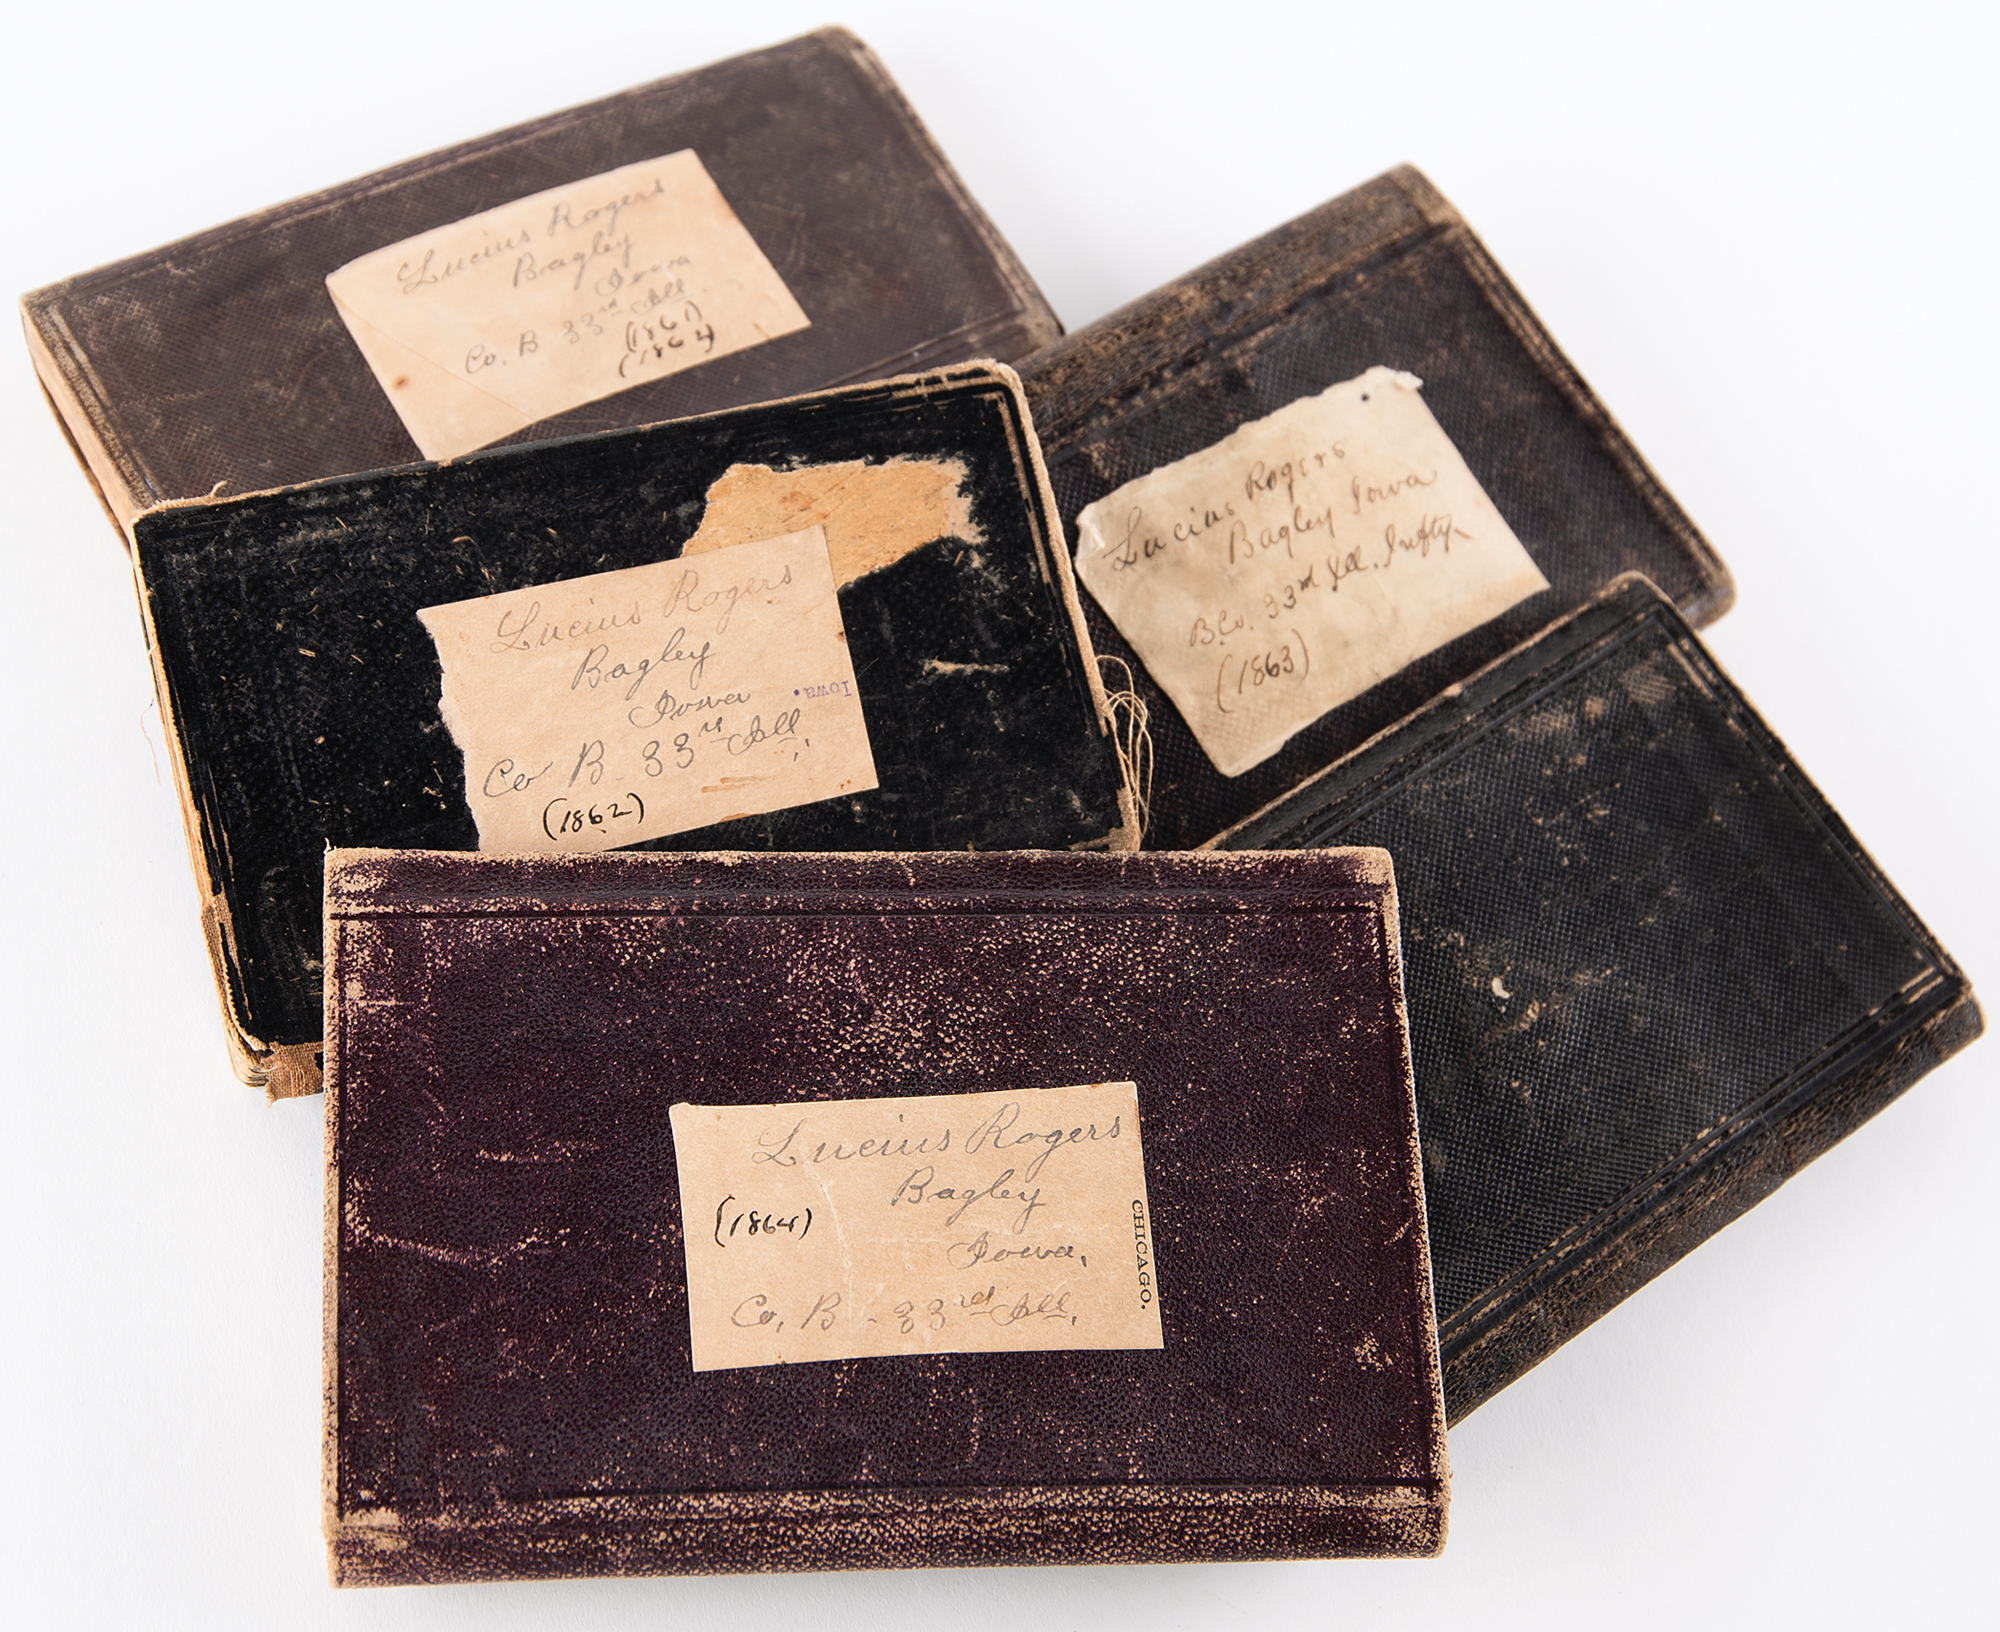 Lucius Rogers
Bagley
Iowa
Co. B 33rd Ill
(1861)
(1862)
Lucius Rogers
Bagley Iowa
B Co. 33rd Ill. Infty
(1863)
Lucius Rogers
Bagley
Iowa
Iowa.
Co B - 33rd Ill,
(1862)
Lucius Rogers
Bagley
(1864)
Iowa,
Co, B - 33rd Ill,
CHICAGO.